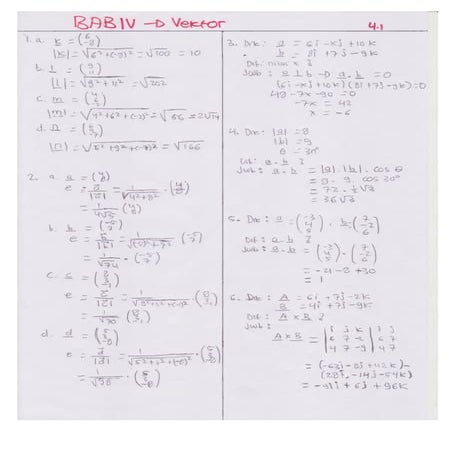 BAB IV → Vektor
4.1
1. a. k = (6 -8)
|k| = √6²+(-8)² = √100 = 10
b. l = (9 11)
|l| = √9²+11² = √202
c. m =
d. n =
2. a. a = (4 8)
e = a/|a| = 1/√4²+8² · (4 8)
= 1/4√5 (4 8)
b. b = (-5 7)
e = b/|b| = (-5 7)
= 1/√74 (-5 7)
c.
e =
d. d =
e = d/|d| =
= 1/√98 ·
3. Dik : a = 6i - xj + 10k
b = 8i + 7j - 9k
Dit : nilai x ?
Jwb : a ⊥ b → a . b = 0
(6i - xj + 10k) (8i + 7j - 9k) = 0
48 - 7x - 90 = 0
-7x = 42
x = -6
4. Dik : |a| = 8
|b| = 9
θ = 30°
Dit : a . b ?
Jwb : a . b = |a| . |b| . cos θ
= 8 . 9 . cos 30°
= 72 . ½√3
= 36√3
5. Dik : a = (-3 4 5) b = (7 -2 6)
Dit : a . b ?
Jwb : a . b = (-3 4 5) . (7 -2 6)
= -21 - 8 + 30
= 1
6. Dik : A = 6i + 7j - 2k
B = 4i + 7j - 9k
Dit : A x B ?
Jwb :
A x B = | i j k | i j
6 7 -2 | 6 7
4 7 -9 | 4 7
= (-63i - 8j + 42k) -
(28k - 14i - 54j)